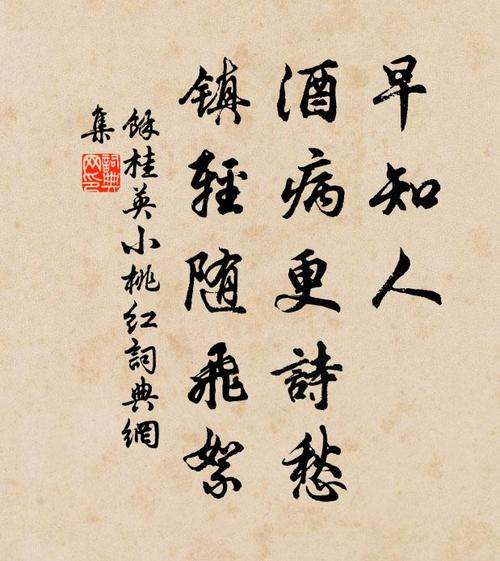 早知人
酒病更詩愁
鎮輕随飛絮
馀桂英小桃红詞典網
集
詞典
网印